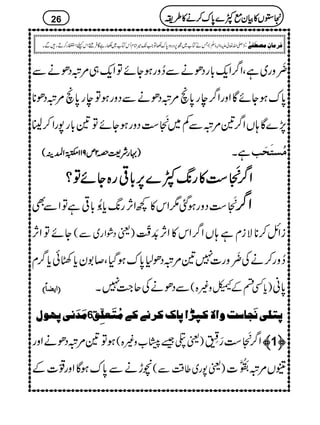 26 نجاستوں کا بیان مع کپڑے پاک کرنے کا طریقہ
فرمانِ مصطفےٰ
ضَروری ہے، اگر ایک بار دھونے سے دُور ہو جائے تو ایک ہی مرتبہ دھونے سے
پاک ہو جائے گا اور اگر چار پانچ مرتبہ دھونے سے دور ہو تو چار پانچ مرتبہ دھونا
پڑے گا ہاں اگر تین مرتبہ سے کم میں نَجاست دور ہو جائے تو تین بار پورا کر لینا
مُسْتَحَب ہے۔ (بہارِ شریعت حصہ ص ۱۱۹ مکتبۃ المدینہ)
اگر نَجاست کا رنگ کپڑے پر باقی رہ جائے تو؟
اگر نَجاست دور ہو گئی مگر اس کا کچھ اثر رنگ یا بُو باقی ہے تو اسے بھی
زائل کرنا لازِم ہے ہاں اگر اس کا اثر بَدِقّت (یعنی دشواری سے) جائے تو اثر
دُور کرنے کی ضَرورت نہیں تین مرتبہ دھولیا پاک ہو گیا، صابون یا کھٹائی یا گرم
پانی (یا کسی قسم کے کیمیکل وغیرہ) سے دھونے کی حاجت نہیں۔ (ایضاً)
پتلی نَجاست والا کپڑا پاک کرنے کے مُتَعلِّق 6 مَدَنی پھول
﴿1﴾ اگر نَجاست رَقیق (یعنی پتلی جیسے پیشاب وغیرہ) ہو تو تین مرتبہ دھونے اور
تینوں مرتبہ بَقُوَّت (یعنی پوری طاقت سے) نچوڑنے سے پاک ہو گا اور قوّت کے